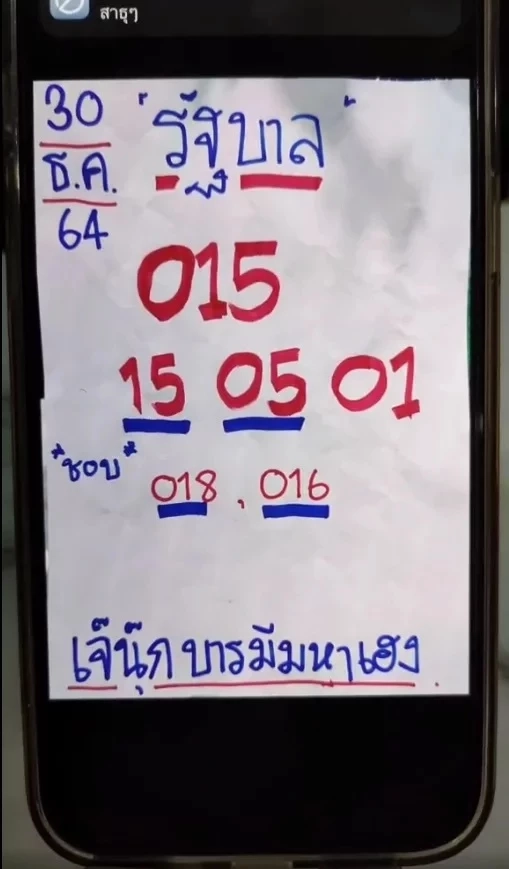 สาธุๆ
30
ธ.ค.
64
"รัฐบาล"
015
15 05 01
"ชอบ" 018 , 016
เจ๊นุ๊ก บารมีมหาเฮง